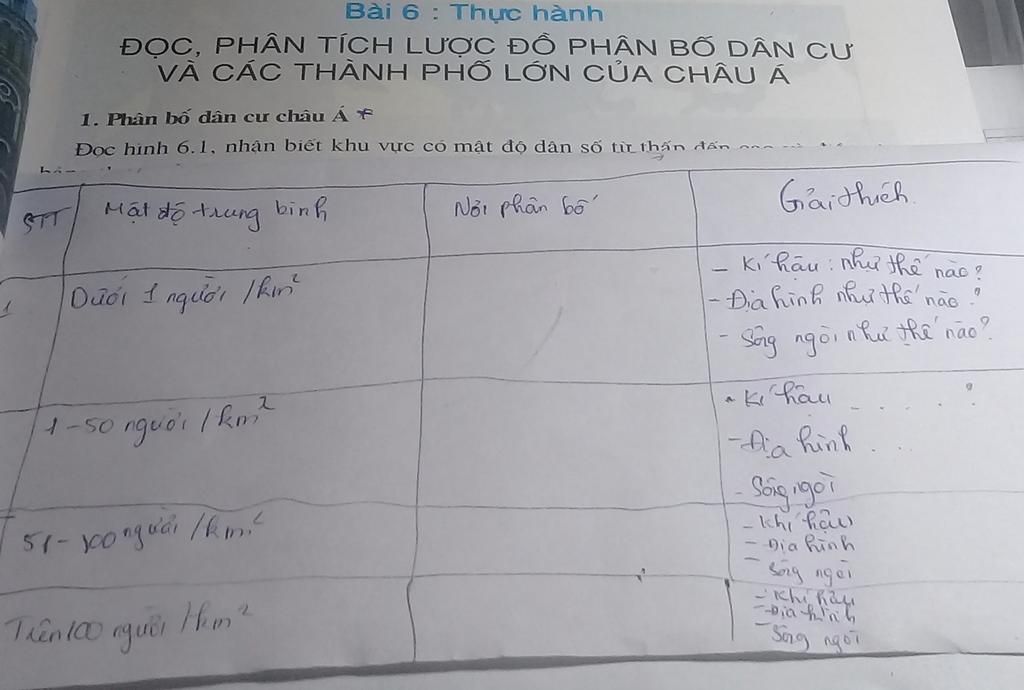 Bài 6 : Thực hành
ĐỌC, PHÂN TÍCH LƯỢC ĐỒ PHÂN BỐ DÂN CƯ
VÀ CÁC THÀNH PHỐ LỚN CỦA CHÂU Á
1. Phân bố dân cư châu Á
Đọc hình 6.1, nhận biết khu vực có mật độ dân số từ thấp đến
STT
Mật độ trung bình
Nơi phân bố
Giải thích
1
Dưới 1 người /km²
- Kí hậu : như thế nào?
- Địa hình như thế nào?
- Sông ngòi như thế nào?
1-50 người /km²
- Kí hậu . . . . . ?
- Địa hình . . .
- Sông ngòi
51-100 người /km²
- Khí hậu
- Địa hình
- Sông ngòi
Trên 100 người /km²
- Khí hậu
- Địa hình
- Sông ngòi